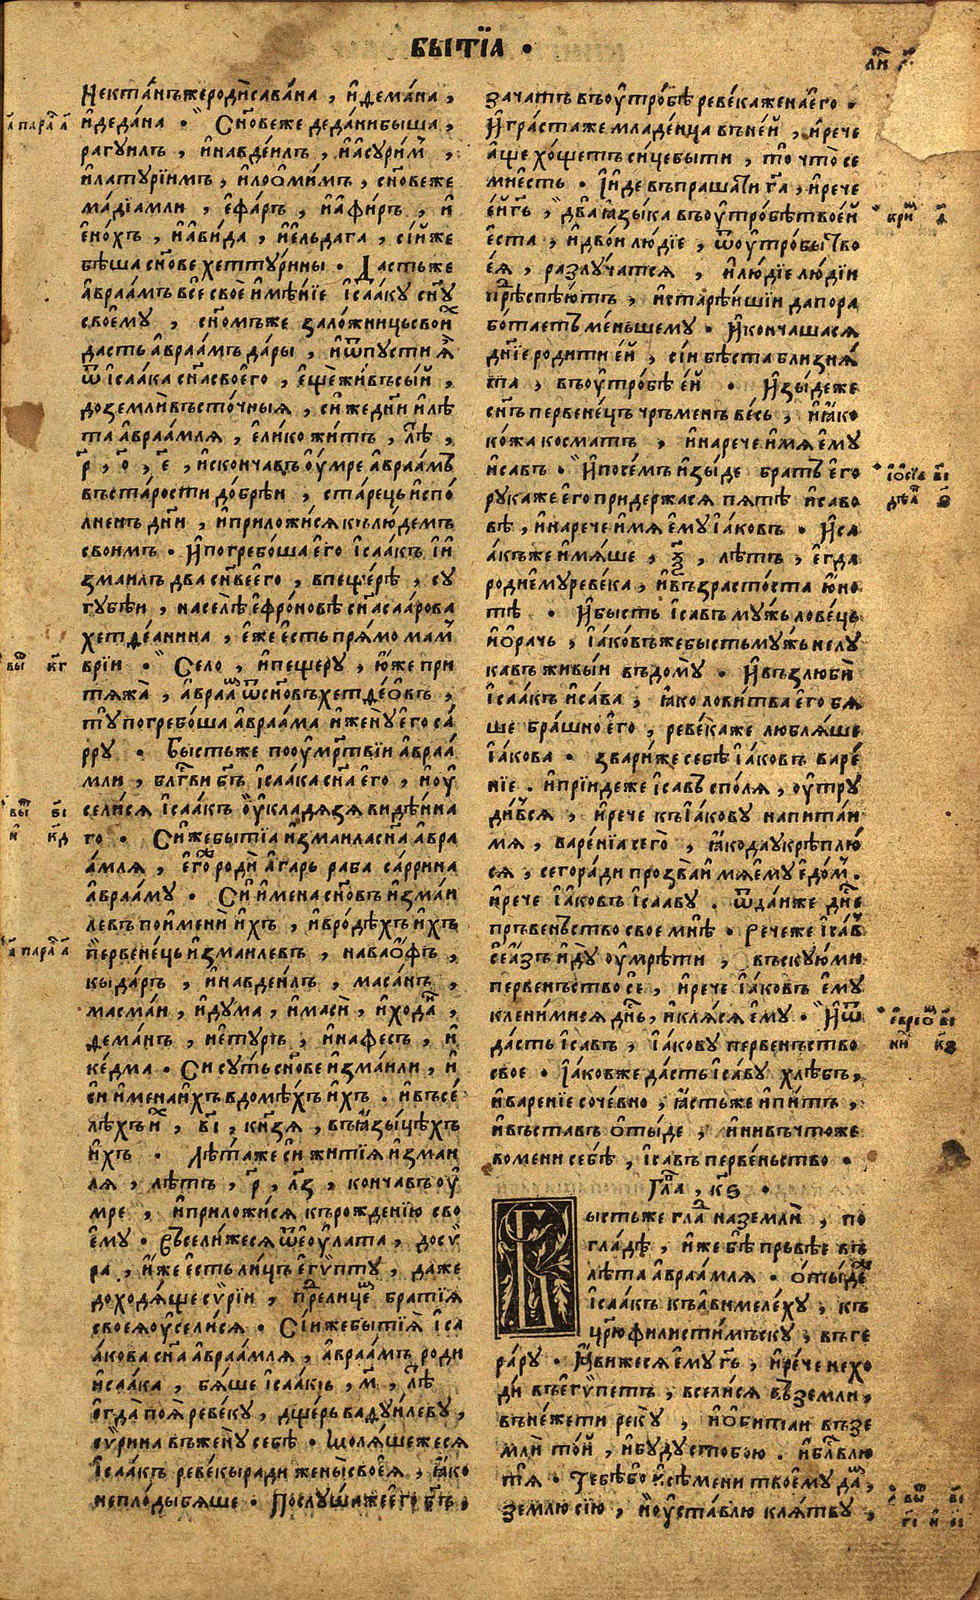 БЫТЇА ·
Нектанъ же роди савана , и демана ,
и дедана · Сн҃ове же дедани быша ,
рагуилъ , и навдеилъ , и асурим ,
и латурїимъ , и лоомимъ , сн҃ове же
мадїамли , ефаръ , и афиръ , и
енохъ , и авида , и елъдага , сїи же
бѣша сн҃ове хеттурины · Дастьже
авраамъ все свое имѣнїе їсааку сн҃у
своему , сн҃омъже заложницъ свои
дасть авраамъ дары , и ѿпусти я
ѿ їсаака сн҃а своего , еще живъ сый ,
до земли въсточныя , си же дн҃и и лѣ
та авраамля , елико житъ , лѣ ,
р҃ , о҃ , е҃ , и скончавъ оумре авраамъ
въ старости добрѣи , старець испо
лненъ дн҃и , и приложися къ людемъ
своимъ · И погребоша его їсаакъ їи
змаилъ два сн҃ы его , в пещерѣ , су
губѣи , на селѣ ефроновѣ сн҃а саарова
хетдеанина , еже есть прямо мам
врїи · Село , и пещеру , юже при
тяжа , авраам ѿ сн҃овъ хетдеовъ ,
ту погребоша авраама и жену его са
рру · Бысть же по оумр҃твїи авраа
мли , блг҃ви бг҃ъ їсаака сн҃а его , и оу
селися їсаакъ оу кладязя видѣнна
го · Си же бытїа измаила сн҃а авра
амля , его роди агарь раба саррина
аврааму · Си имена сн҃овъ измаи
левъ по имени ихъ , и в родѣхъ ихъ
первенець измаилевъ , наваофъ ,
кыдаръ , и навдеилъ , масанъ ,
масман , и дума , и маси , и ходад ,
деманъ , иетуръ , и нафесъ , и
кедма · Си суть сн҃ове измаили , и
си имена ихъ в домѣхъ ихъ · и въ се
лѣхъ и , в҃і , кн҃зя , въ языцѣхъ
ихъ · Лѣта же си житїя измаи
ля , лѣтъ , р҃ , л҃з , кончавъ оу
мре , и приложися къ рожденїю сво
ему · Въселижеся ѿ еоулата , до су
ра , иже есть лицъ египту , даже
доходяще сурїи , пр҃елицем братїя
своея оуселися · Сїи же бытїя їса
акова сн҃а авраамля , авраамъ роди
исаака , бяше їсаакъ , м҃ , лѣ
егда поя ревеку , дщерь вадуилеву ,
сурина въ жену себѣ · Моляшежеся
їсаакъ ревекы ради жены своея , яко
неплоды бяше · Послуша же его бг҃ъ ·
зачатъ въ оутробѣ ревека жена его ·
И грастаже младенца въ ней , и рече
аще хощетъ сице быти , то что се
ми есть · Їиде въпрашати г҃а , и рече
ей г҃ь , два языка въ оутробѣ твоей
еста , и двои людїе , ѿ оутробы тво
ея , разлучатся , и людїе людїи
пр҃еспѣютъ , и старѣишїи да пора
ботаетъ меньшему · И кончашася
дн҃їе родити ей , сїи бѣста близня
та , въ оутробѣ ей · Изыде же
сн҃ъ первенець чръменъ весь , и яко
кожа косматъ , и нарече имя ему
исавъ · И посемъ изыде братъ его
рука же его придержася пятѣ исаво
вѣ , и нарече имя ему їаковъ · Иса
акъ же имяше , ѯ҃ , лѣтъ , егда
роди ему ревека , и възрастоста юно
тѣ · И бысть їсавъ мужь ловець
и орачь , їаковъ же бысть мужь нелу
кавъ живыи въ дому · И възлюби
їсаакъ исава , яко ловитва его бя
ше брашно его , ревека же любляше
їакова · звариже себѣ їаковъ варе
нїе . и прїиде же їсавъ с поля , оутру
дивъся , и рече къ їакову напитаи
мя , варенїа сего , яко да укрѣплю
ся , сего ради прозва имя ему едом .
и рече їаковъ їсаву . ѿдаиже дн҃е
пръвеньство свое мнѣ · Рече же їсав
се азъ иду оумрѣти , въскую ми
первенъство се , и рече їаковъ ему
клени ми ся дн҃ь , и кляся ему · И ѿ
дасть їсавъ , їакову первенъство
свое · Їаков же дасть їсаву хлѣбъ ,
и варение сочевно , ястьже и питъ ,
и въставъ отыде , и ни въ что же
вомени себѣ , їсавъ первеньство ·
Гла҃ , к҃ѕ ·
Бысть же гла на земли , по
гладѣ , иже бѣ прьвѣе въ
лѣта авраамля · отыде
їсаакъ къ авимелеху , къ
цр҃ю филистимъску , въ ге
рару · Явижеся ему г҃ь , и рече не хо
ди въ египетъ , вселися въ земли ,
въ нежети реку , и обитаи въ зе
мли той , и буду с тобою . и блв҃лю
тя · Тебѣ бо и сѣмени твоему дам
землю сїю , и оуставлю клятву ,